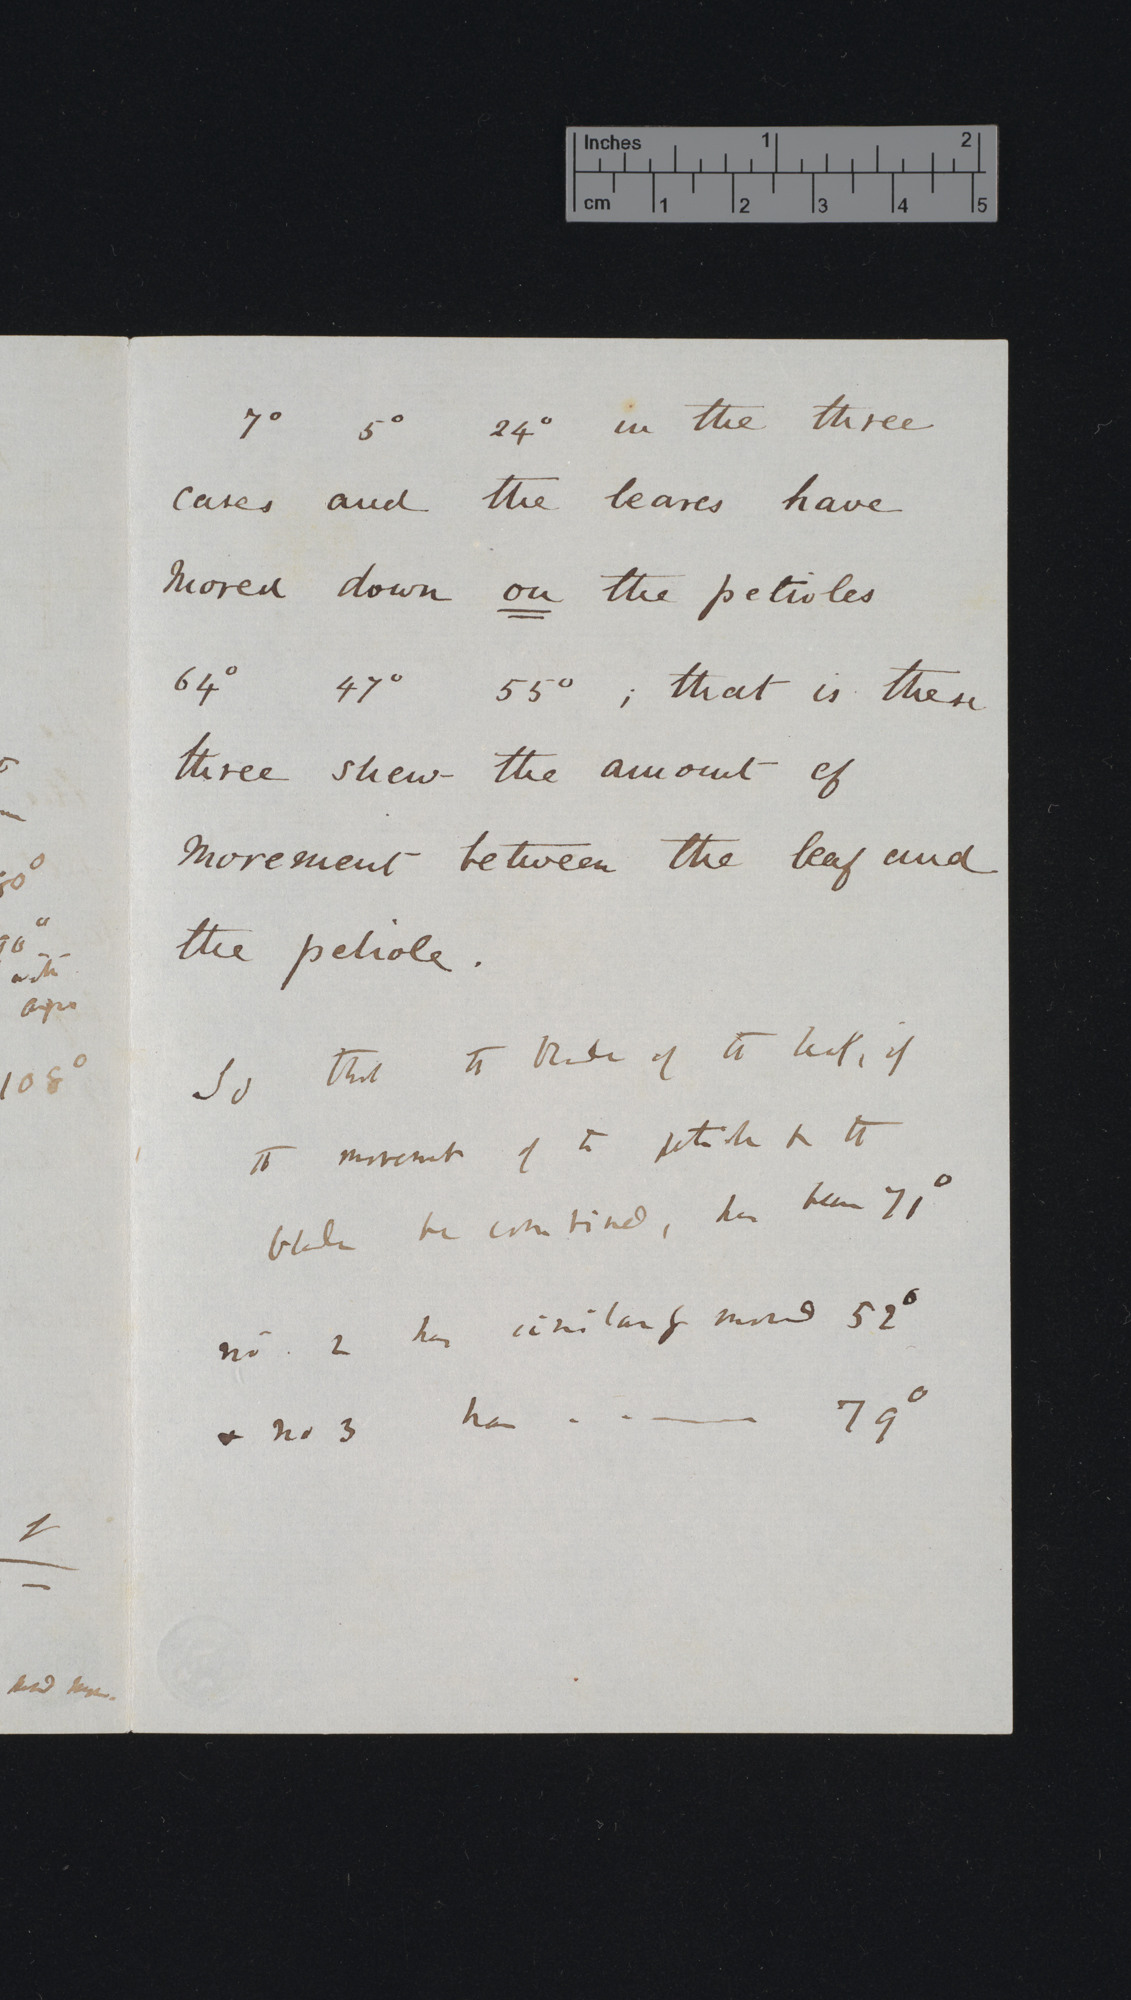 Inches 1 2
cm 1 2 3 4 5
7° 5° 24° in the three
cases and the leaves have
moved down on the petioles
64° 47° 55° ; that is these
three shew the amount of
movement between the leaf and
the petiole.
So that the blade of the leaf, if
the movement of the petiole & the
blade be combined, has been 71°
no. 2 has similarly moved 52°
& no 3 has - - — 79°
90°
with
108°